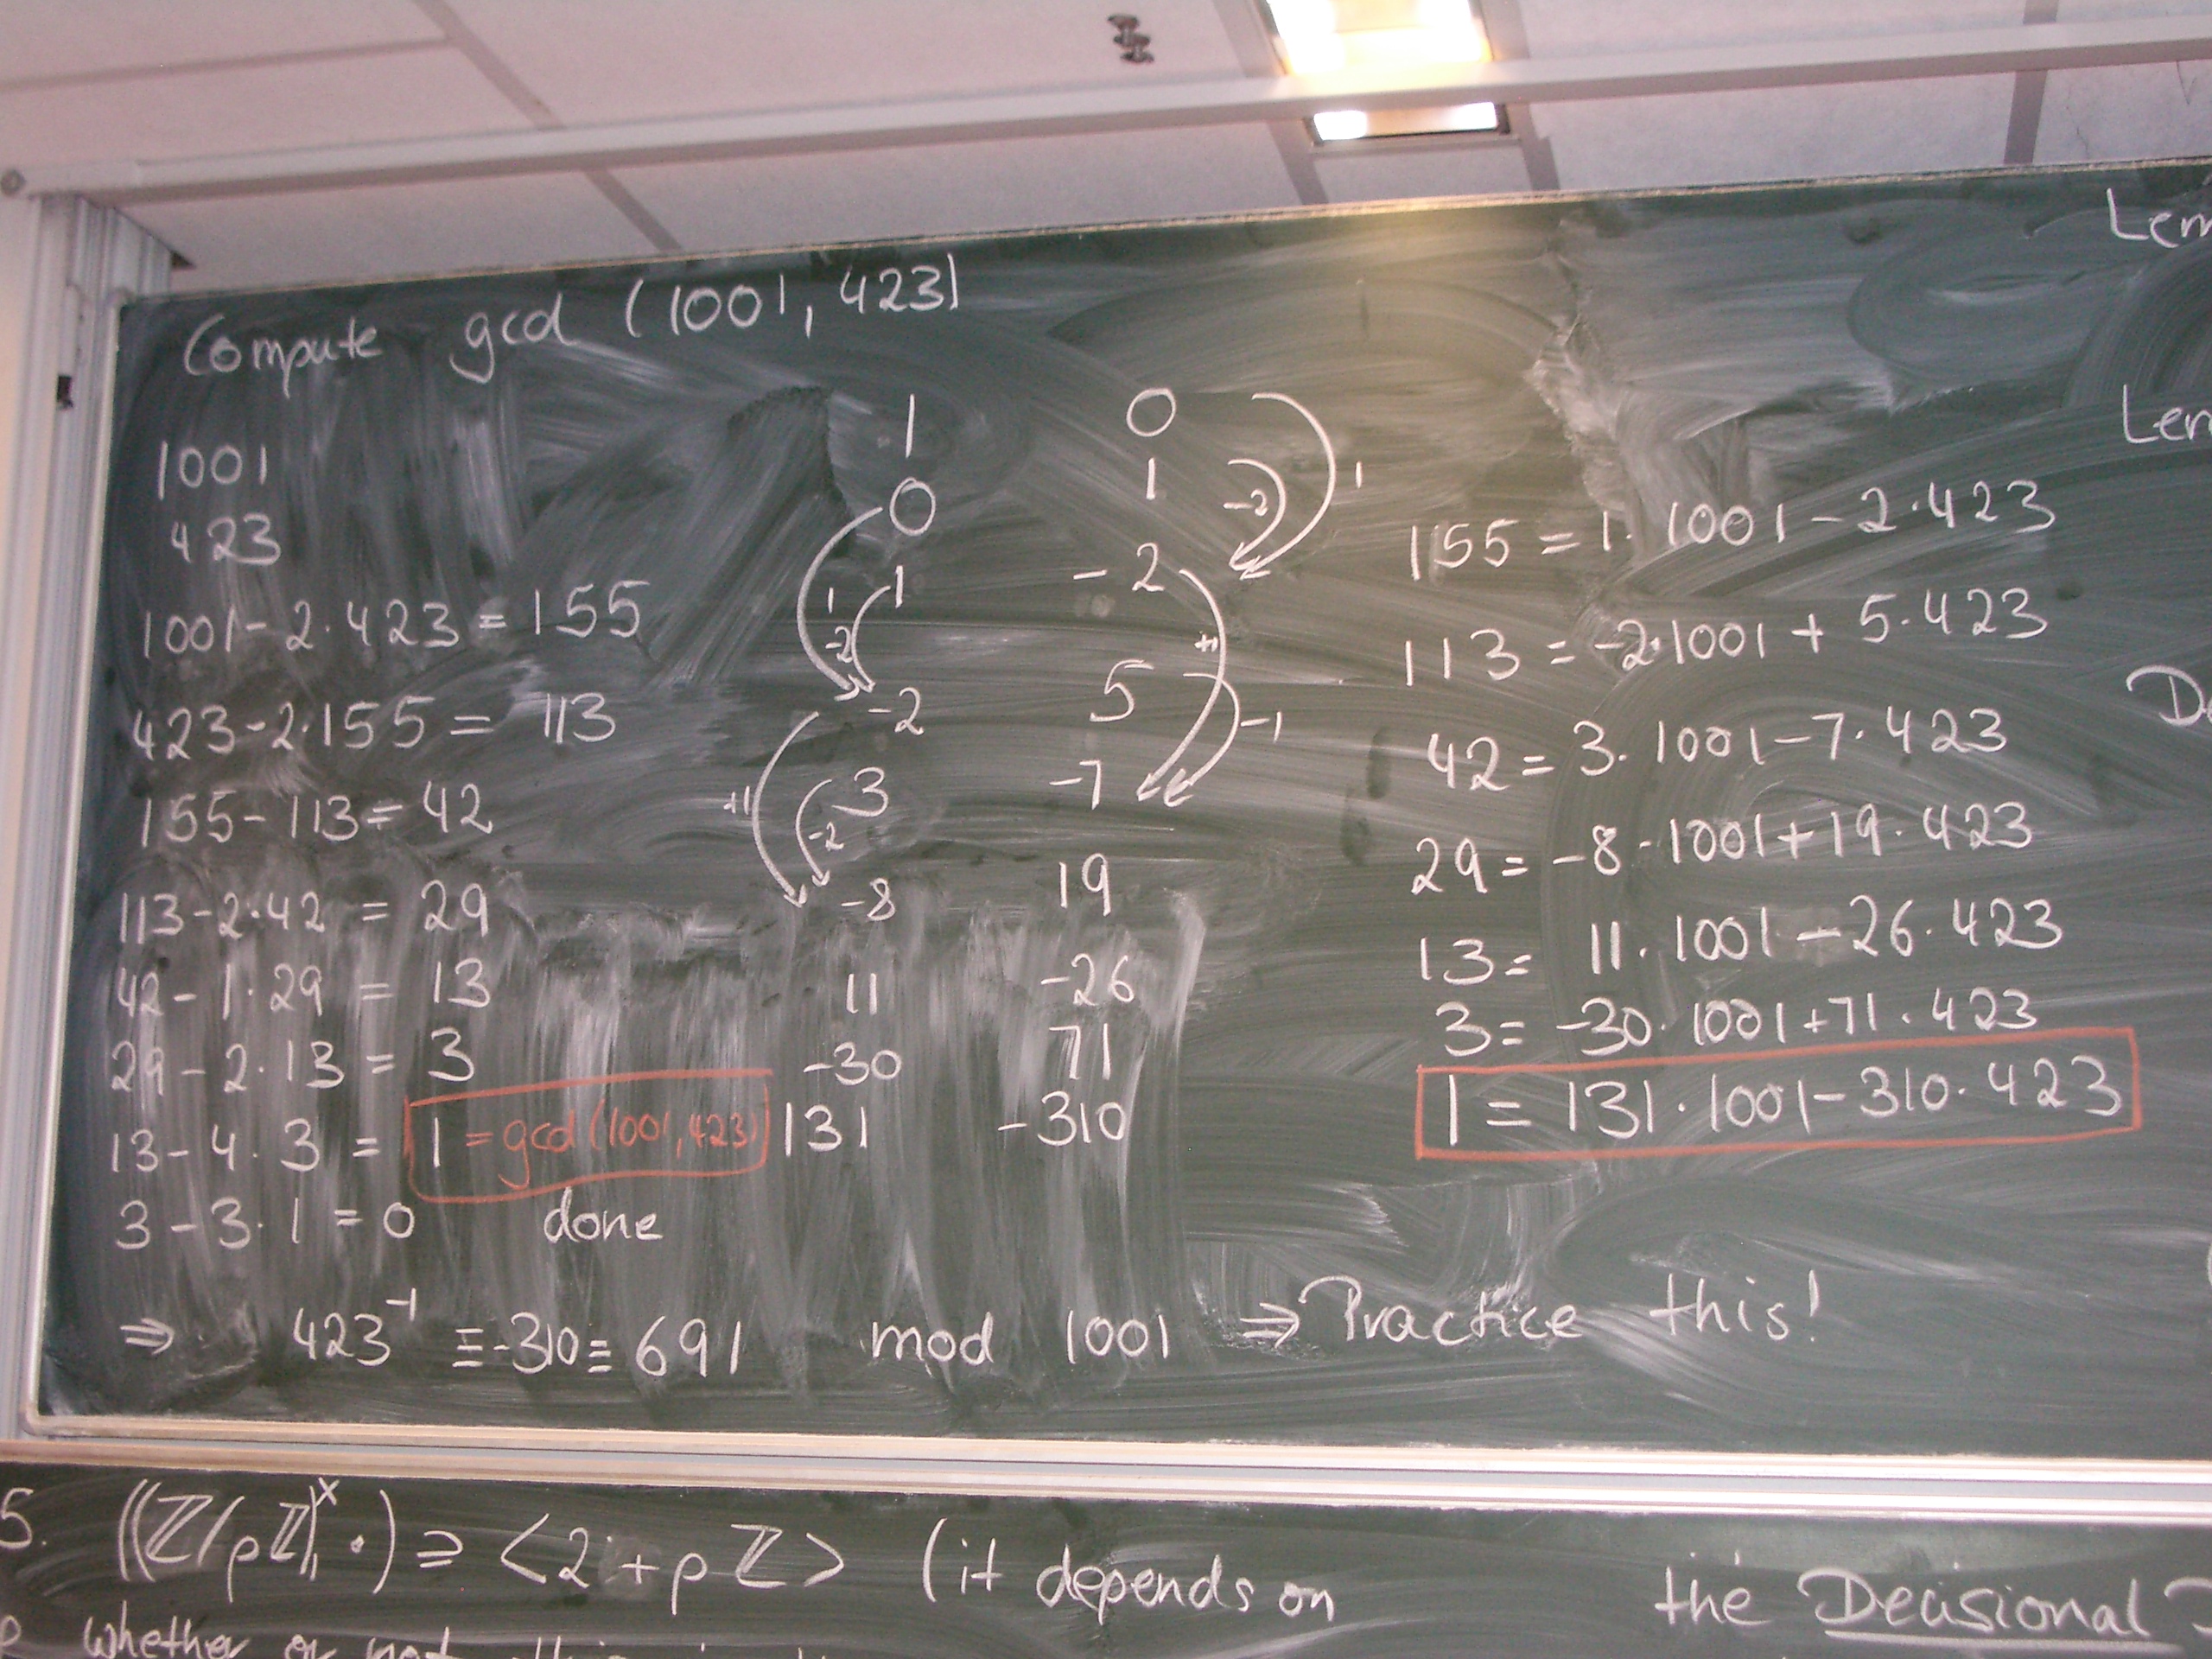 Compute gcd (1001, 423)
1001 1 0
423 0 1
1001 - 2·423 = 155 1 -2 155 = 1·1001 - 2·423
423 - 2·155 = 113 -2 5 113 = -2·1001 + 5·423
155 - 113 = 42 3 -7 42 = 3·1001 - 7·423
113 - 2·42 = 29 -8 19 29 = -8·1001 + 19·423
42 - 1·29 = 13 11 -26 13 = 11·1001 - 26·423
29 - 2·13 = 3 -30 71 3 = -30·1001 + 71·423
13 - 4·3 = 1 = gcd(1001,423) 131 -310 1 = 131·1001 - 310·423
3 - 3·1 = 0 done
⇒ 423⁻¹ ≡ -310 ≡ 691 mod 1001 ⇒ Practice this!
1
-2
1
-2
+1
-1
+1
-2
Lem
Lem
5. ((ℤ/pℤ)^×, ·) ⩾ <2+pℤ> (it depends on
whether or not
the Decisional